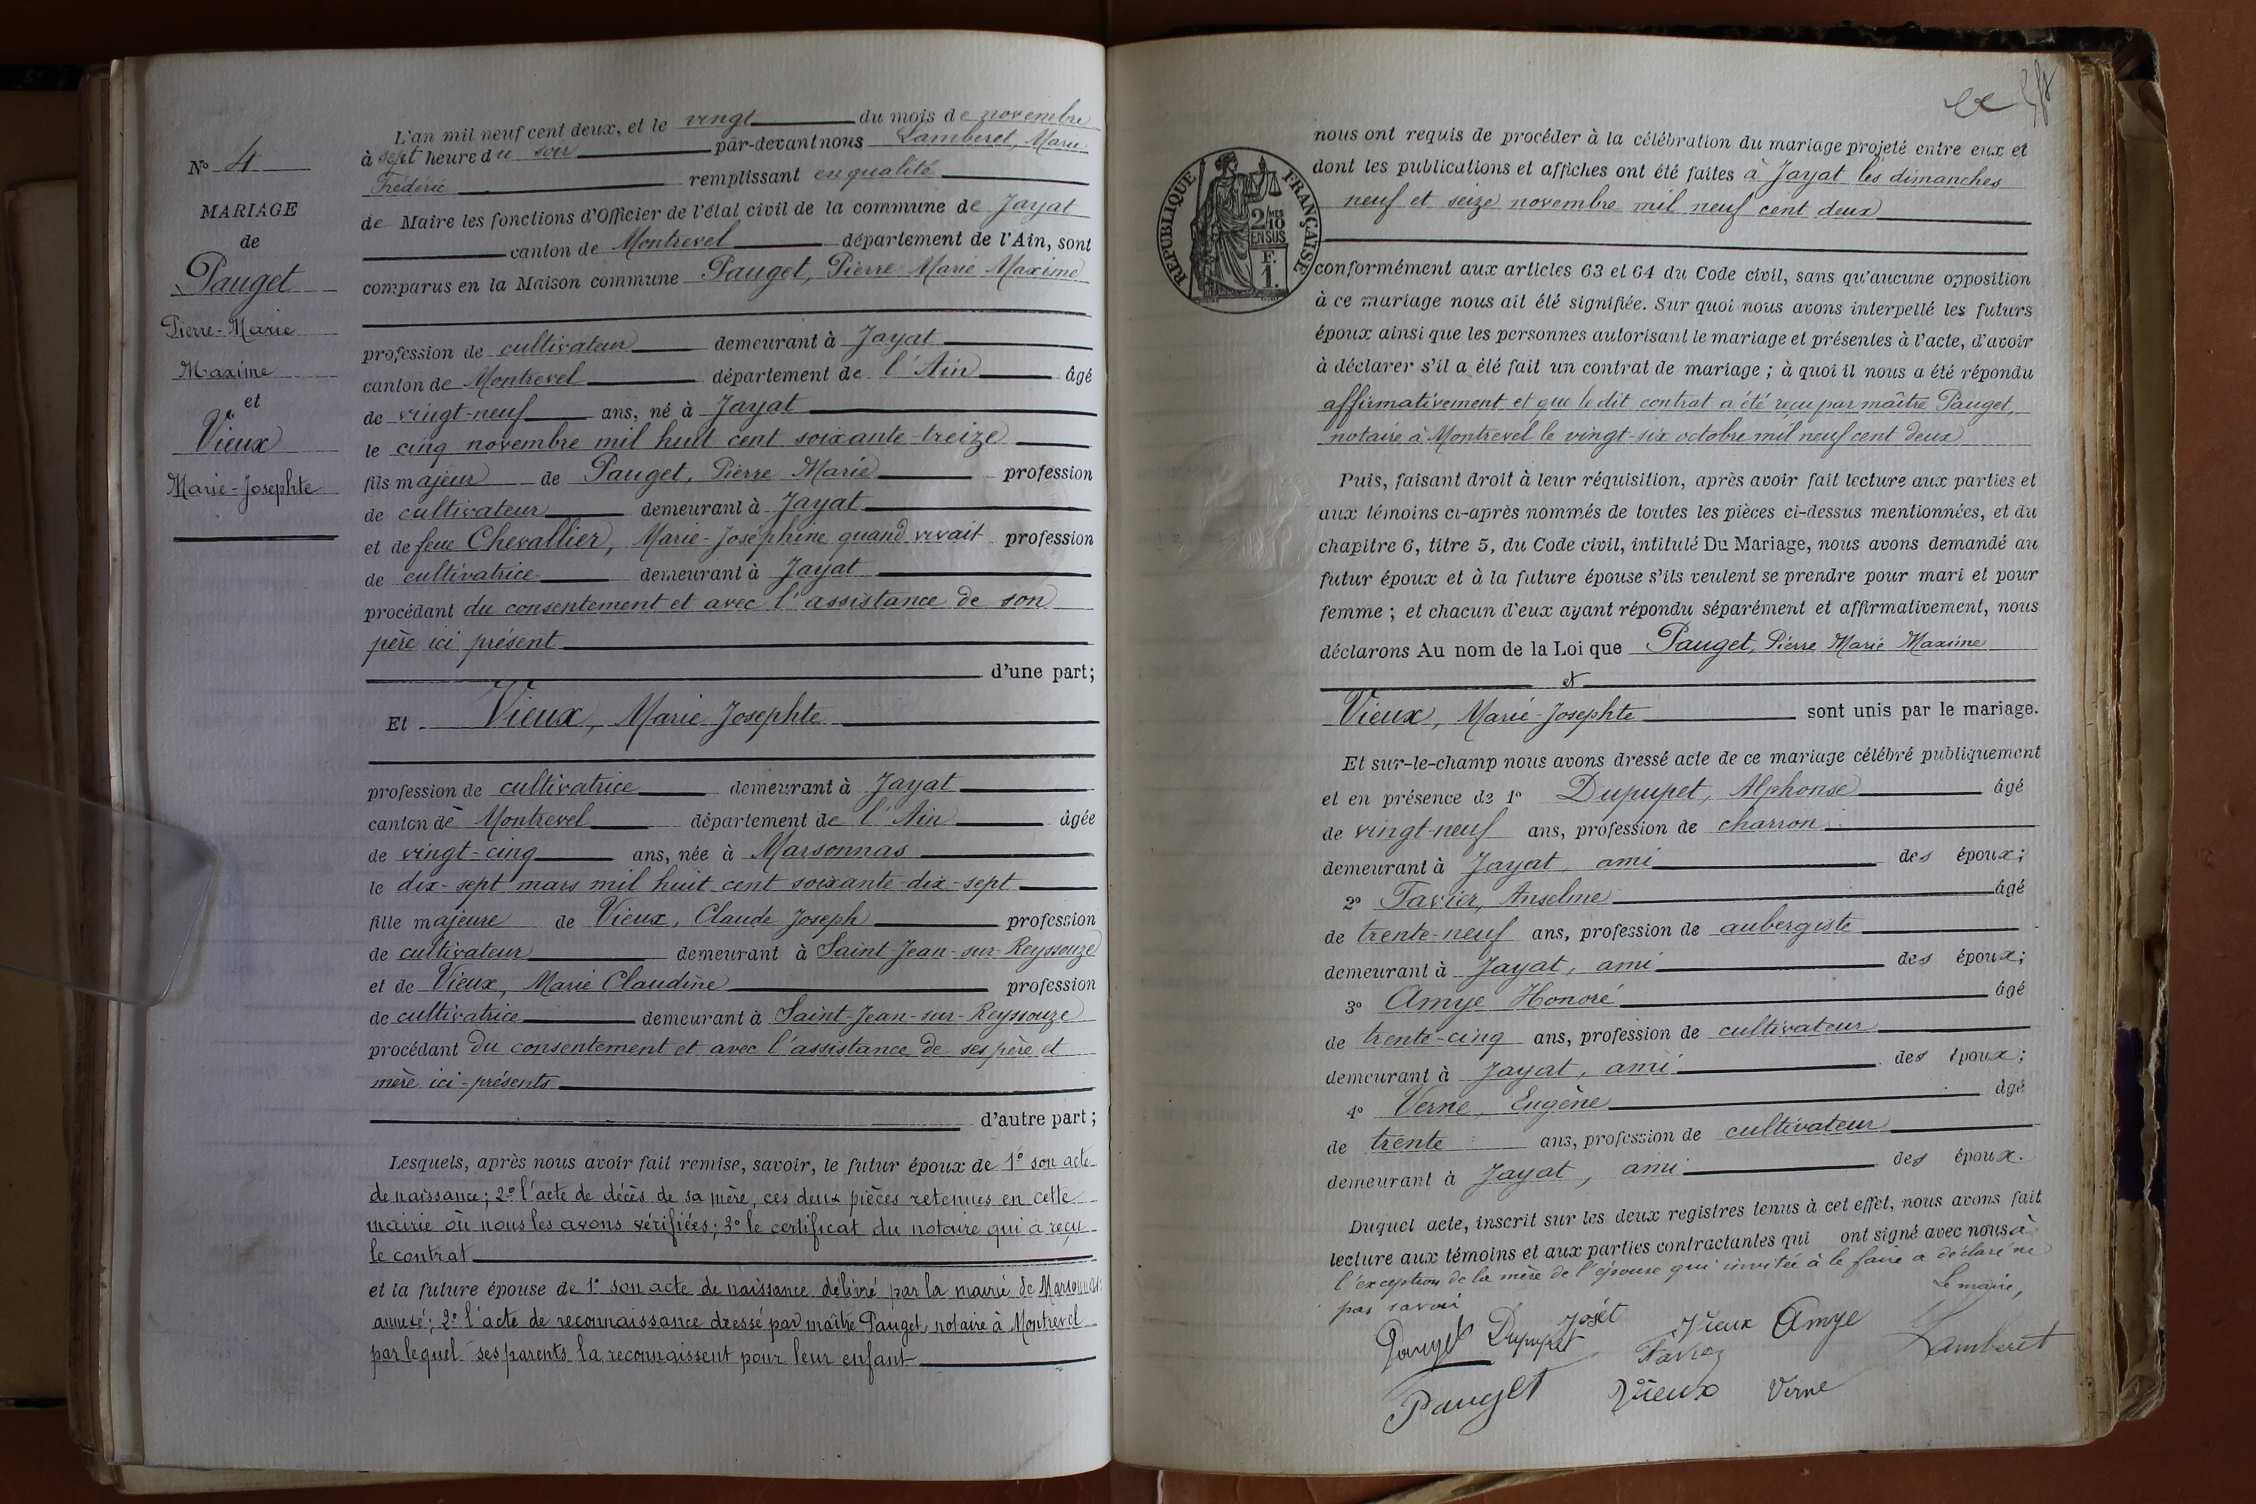 N° 4
MARIAGE
de
Pauget
Pierre-Marie
Maxime
et
Vieux
Marie-Josephte
L'an mil neuf cent deux, et le vingt du mois de novembre
à sept heure du soir par-devant nous Lamberet, Marie
Frédéric remplissant en qualité
de Maire les fonctions d'Officier de l'état civil de la commune de Jayat
canton de Montrevel département de l'Ain, sont
comparus en la Maison commune Pauget, Pierre Marie Maxime
profession de cultivateur demeurant à Jayat
canton de Montrevel département de l'Ain âgé
de vingt-neuf ans, né à Jayat
le cinq novembre mil huit cent soixante-treize
fils majeur de Pauget, Pierre Marie profession
de cultivateur demeurant à Jayat
et de feue Chevallier, Marie-Joséphine quand vivait profession
de cultivatrice demeurant à Jayat
procédant du consentement et avec l'assistance de son
père ici présent
d'une part;
Et Vieux, Marie Josephte
profession de cultivatrice demeurant à Jayat
canton de Montrevel département de l'Ain âgée
de vingt-cinq ans, née à Marsonnas
le dix-sept mars mil huit cent soixante-dix-sept
fille majeure de Vieux, Claude Joseph profession
de cultivateur demeurant à Saint-Jean-sur-Reyssouze
et de Vieux, Marie Claudine profession
de cultivatrice demeurant à Saint-Jean-sur-Reyssouze
procédant du consentement et avec l'assistance de ses père et
mère ici-présents
d'autre part;
Lesquels, après nous avoir fait remise, savoir, le futur époux de 1° son acte
de naissance; 2° l'acte de décès de sa mère, ces deux pièces retenues en cette
mairie où nous les avons vérifiées; 3° le certificat du notaire qui a reçu
le contrat
et la future épouse de 1° son acte de naissance délivré par la mairie de Marsonnas
annexé; 2° l'acte de reconnaissance dressé par maître Pauget, notaire à Montrevel
par lequel ses parents la reconnaissent pour leur enfant
RÉPUBLIQUE FRANÇAISE
2/10
EN SUS
F.
1.
nous ont requis de procéder à la célébration du mariage projeté entre eux et
dont les publications et affiches ont été faites à Jayat les dimanches
neuf et seize novembre mil neuf cent deux
conformément aux articles 63 et 64 du Code civil, sans qu'aucune opposition
à ce mariage nous ait été signifiée. Sur quoi nous avons interpellé les futurs
époux ainsi que les personnes autorisant le mariage et présentes à l'acte, d'avoir
à déclarer s'il a été fait un contrat de mariage; à quoi il nous a été répondu
affirmativement et que le dit contrat a été reçu par maître Pauget,
notaire à Montrevel le vingt-six octobre mil neuf cent deux
Puis, faisant droit à leur réquisition, après avoir fait lecture aux parties et
aux témoins ci-après nommés de toutes les pièces ci-dessus mentionnées, et du
chapitre 6, titre 5, du Code civil, intitulé Du Mariage, nous avons demandé au
futur époux et à la future épouse s'ils veulent se prendre pour mari et pour
femme; et chacun d'eux ayant répondu séparément et affirmativement, nous
déclarons Au nom de la Loi que Pauget, Pierre Marie Maxime
et
Vieux, Marie-Josephte sont unis par le mariage.
Et sur-le-champ nous avons dressé acte de ce mariage célébré publiquement
et en présence de 1° Dupupet, Alphonse âgé
de vingt-neuf ans, profession de charron
demeurant à Jayat, ami des époux;
2° Favier, Anselme âgé
de trente-neuf ans, profession de aubergiste
demeurant à Jayat, ami des époux;
3° Amye Honoré âgé
de trente-cinq ans, profession de cultivateur
demeurant à Jayat, ami des époux;
4° Verne, Eugène âgé
de trente ans, profession de cultivateur
demeurant à Jayat, ami des époux.
Duquel acte, inscrit sur les deux registres tenus à cet effet, nous avons fait
lecture aux témoins et aux parties contractantes qui ont signé avec nous à
l'exception de la mère de l'épouse qui invitée à le faire a déclaré ne
pas savoir
Le maire,
Pauget Dupupet Vieux Amye
Lamberet
Pauget Vieux Verne